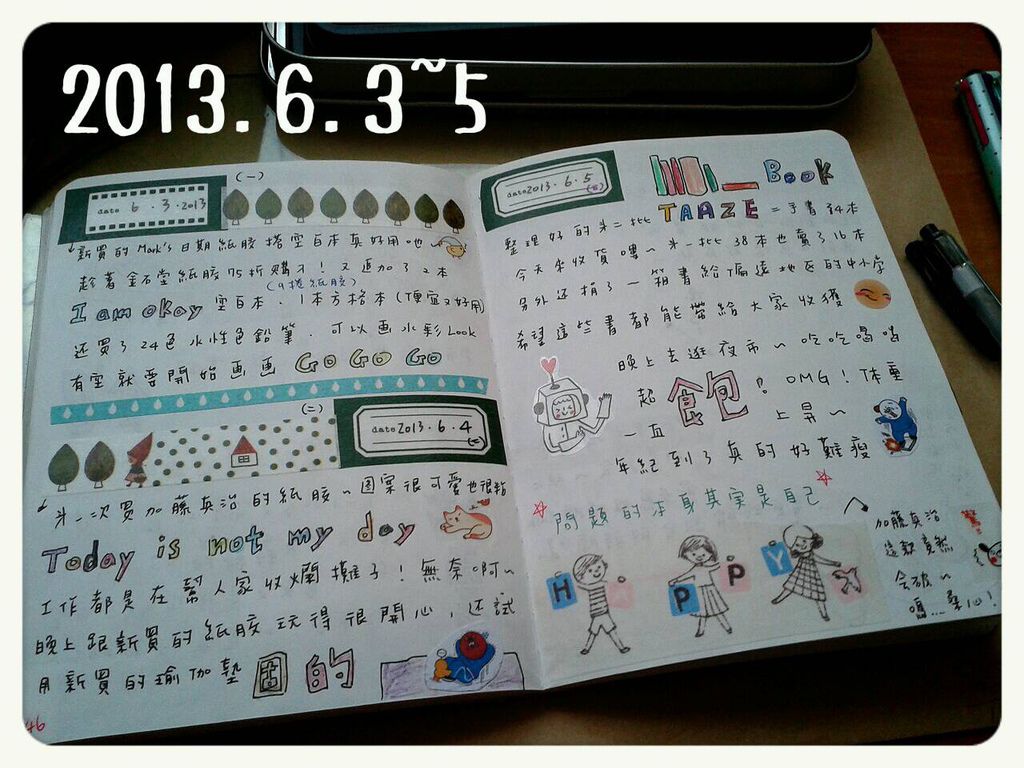 2013.6.3~5
(一)
date 6.3.2013
新買的 Mark's 日期紙膠搭空白本真好用吔~
趁著金石堂紙膠75折購入!又追加了2本
(9捲紙膠)
I am okay 空白本、1本方格本(便宜又好用)
還買了24色水性色鉛筆、可以画水彩 Look
有空就要開始画画 GO GO GO
(二)
date 2013.6.4
第一次買加藤真治的紙膠~図案很可愛也很黏
Today is not my day
工作都是在幫人家收爛攤子!無奈啊~
晚上跟新買的紙膠玩得很開心,還試
用新買的瑜伽墊 圓的
46
date 2013.6.5
Book
整理好的第二批 TAAZE 二手書34本
今天來收貨嘿~第一批38本也賣了16本
另外还捐了一箱書給偏遠地区的中小学
希望這些書都能帶給大家收獲
晚上去逛夜市~吃吃喝喝
超 飽 ? OMG!体重
一直 上昇~
年紀到了真的好難瘦
問題的本身其実是自己
加藤真治
這款竟然
会破~
嗚...傷心!
HAPPY